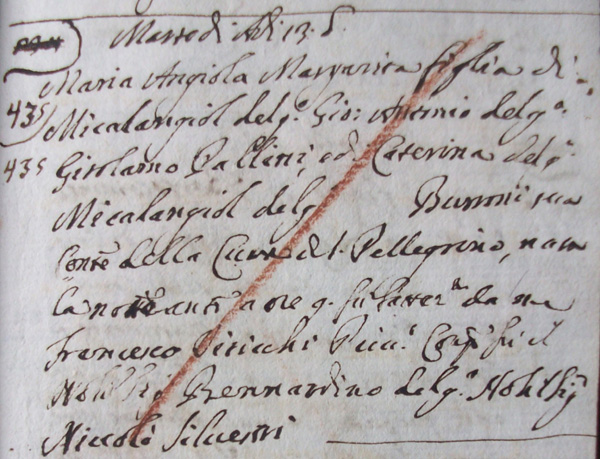 Martedi Adi 13. d.
Maria Angiola Margarita figlia di
435 Micalangiol del q. Gio: Antonio del q.
435 Girolamo Pallini, e di Caterina del q.
Micalangiol del q. Burroni sua
Conte della Cura di S. Pellegrino, nata
la notte antte a ore 9. fu batter. da me
Francesco Piricchi Picc. Comp. fu il
Nob. Sig Bernardino del q. Nob. Sig
Niccolò Silvestri